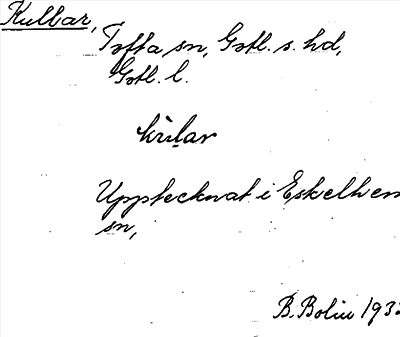 Kullbar,
Tofta sn, Gotl. s. hd,
Gotl. l.
Upptecknat i Eskelhem
sn,
B. Bolin 193